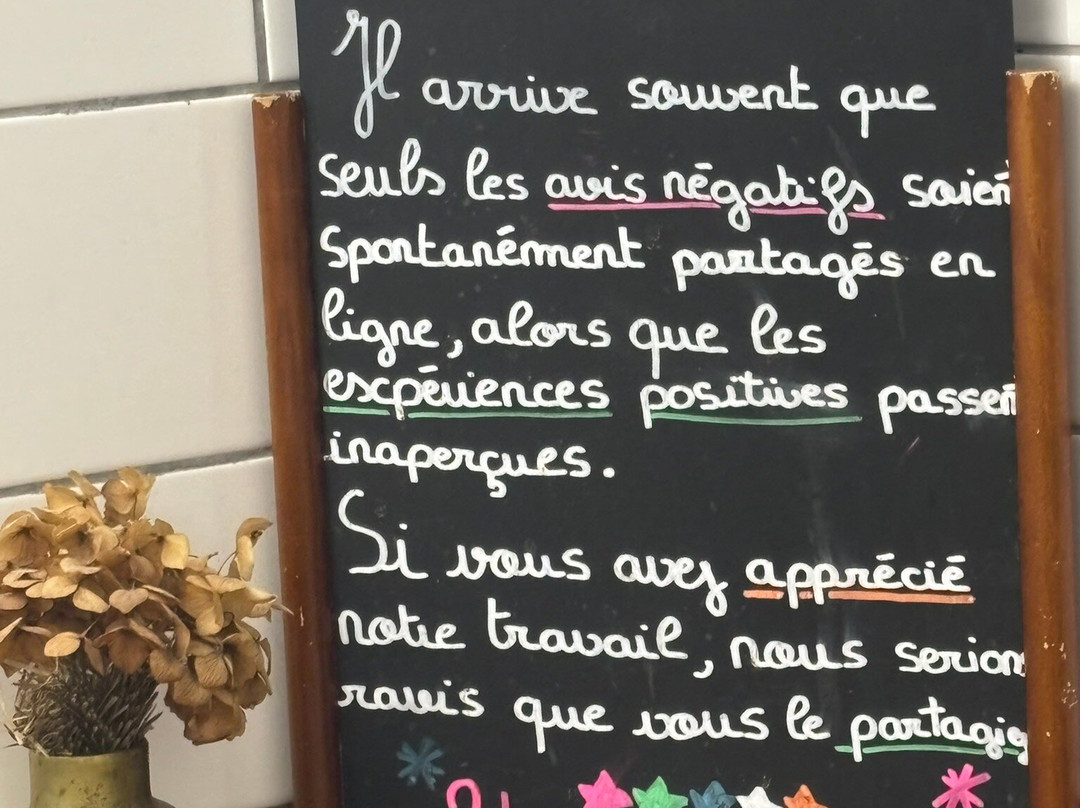 Il arrive souvent que
seuls les avis négatifs soient
spontanément partagés en
ligne, alors que les
expériences positives passent
inaperçues.
Si vous avez apprécié
notre travail, nous serions
ravis que vous le partagie